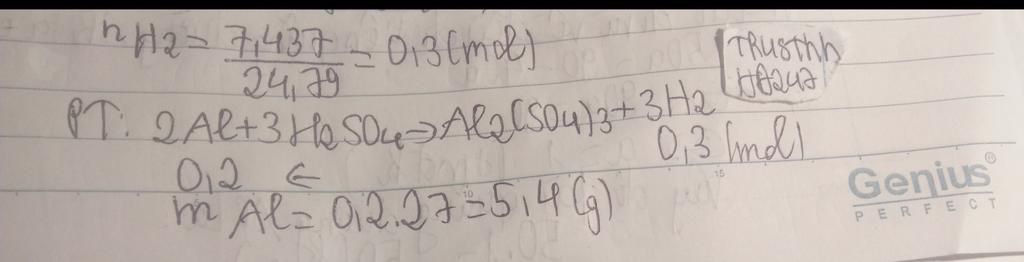 nH2 = 7,437/24,79 = 0,3(mol)
TRUSTHh
H0247
PT: 2Al+3H2SO4→Al2(SO4)3+3H2
0,2 ← 0,3 (mol)
m Al = 0,2.27=5,4(g)
10
15
Genius®
PERFECT